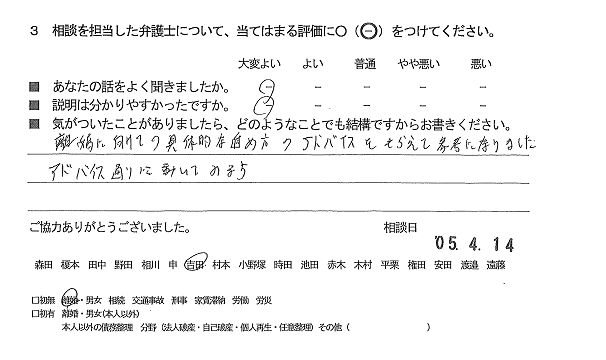 3 相談を担当した弁護士について、当てはまる評価に○(⊖)をつけてください。
大変よい よい 普通 やや悪い 悪い
■ あなたの話をよく聞きましたか。 − − − − −
■ 説明は分かりやすかったですか。 − − − − −
■ 気がついたことがありましたら、どのようなことでも結構ですからお書きください。
離婚に向けての具体的な進め方のアドバイスをもらえて参考になりました
アドバイス通りに動いてみよう
ご協力ありがとうございました。 相談日
'05. 4. 14
森田 榎本 田中 野田 相川 申 吉田 村本 小野塚 時田 池田 赤木 木村 平栗 権田 安田 渡邉 遠藤
□初無 離婚・男女 相続 交通事故 刑事 家賃滞納 労働 労災
□初有 離婚・男女(本人以外)
本人以外の債務整理 分野(法人破産・自己破産・個人再生・任意整理)その他( )